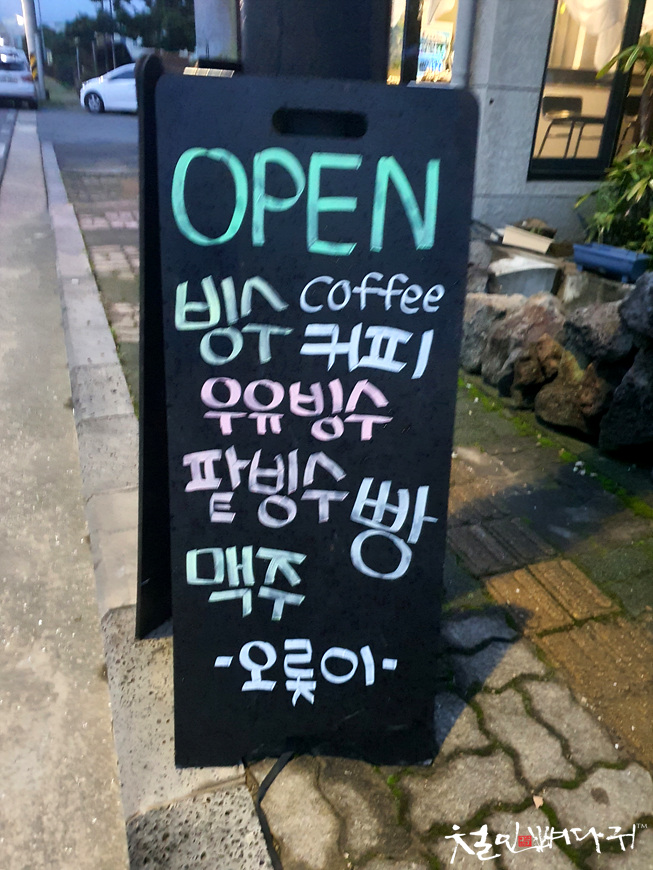 OPEN
빙수 coffee
커피
우유빙수
팥빙수
빵
맥주
-오롯이-
철인뼈다귀™